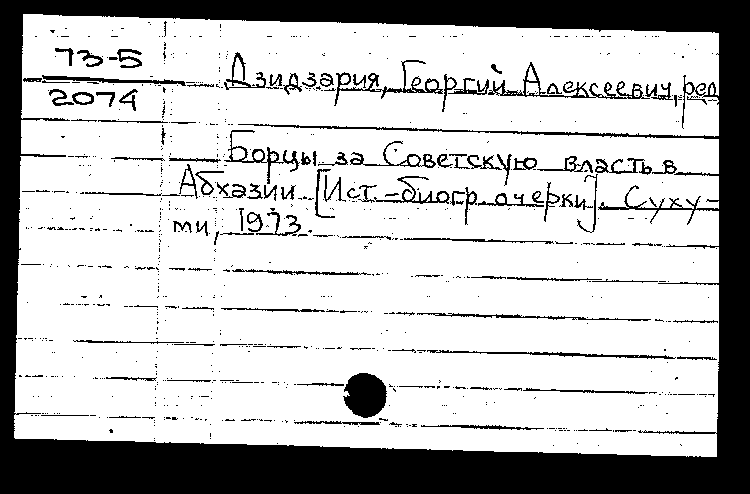 73-5
2074
Дзидзария, Георгий Алексеевич, ред
Борцы за Советскую власть в
Абхазии [Ист.-биогр. очерки]. Суху-
ми, 1973.